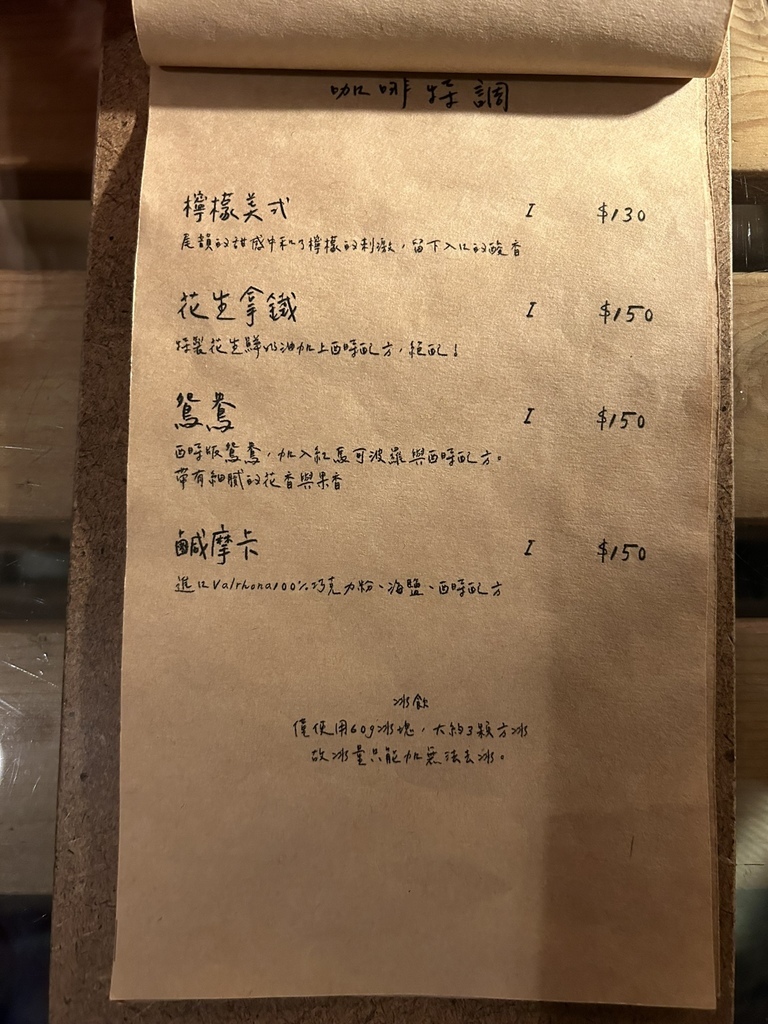 咖啡特調
檸檬美式 I $130
尾韻的甜感中和了檸檬的刺激，留下入口的酸香
花生拿鐵 I $150
特製花生鮮奶油加上酉時配方，絕配！
鴛鴦 I $150
酉時版鴛鴦，加入紅馬可波羅與酉時配方。
帶有細膩的花香與果香
鹹摩卡 I $150
進口Valrhona100%巧克力粉、海鹽、酉時配方
冰飲
僅使用60g冰塊，大約3顆方冰
故冰量只能加無法去冰。